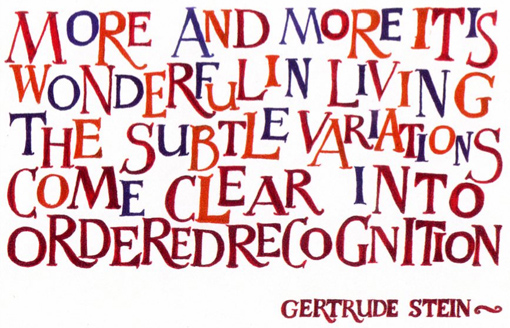 MORE AND MORE IT IS
WONDERFUL IN LIVING
THE SUBTLE VARIATIONS
COME CLEAR INTO
ORDERED RECOGNITION
GERTRUDE STEIN~